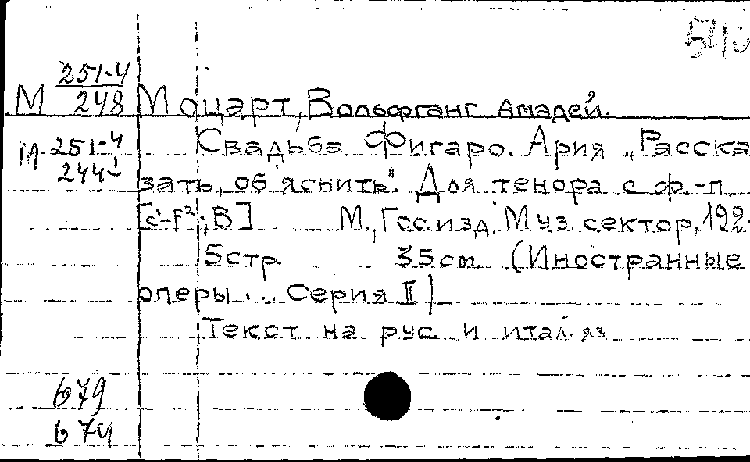 251-4
М 248 Моцарт, Вольфганг Амадей.
251-4 Свадьба Фигаро. Ария „Расска
244 зать, об'яснить". Для тенора с ф.-п.
[c'-f²; B] М., Гос. изд. Муз. сектор, 192
5 стр. 35 см (Иностранные
оперы... Серия II)
Текст на рус. и итал. яз.
679
674